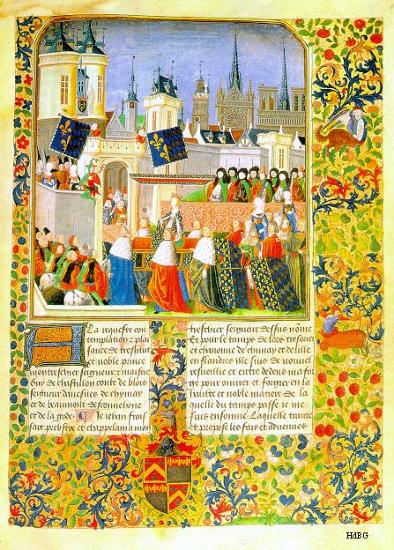 A la requeste con
templacion z plai
sance de treshault
et noble prince
mon treschier seigneur z maistre
Guy de chastillon conte de blois
seigneur davesnes de chymay
et de beaumont de sconnehove
et de la gode Je jehan frois
sart prebstre et chappelain a mon
treschier seigneur dessus nome
Et pour le tamps de lors tresorier
et chanonne de chymay et de lille
en flandres me suis de nouvel
resveillie et entre dedens ma for
ge pour ouvrer et forgier en la
haulte et noble matiere de la
quelle du tamps passe je me
suis ensonne. Laquelle traitte
et propose les fais et advenues
HdBG